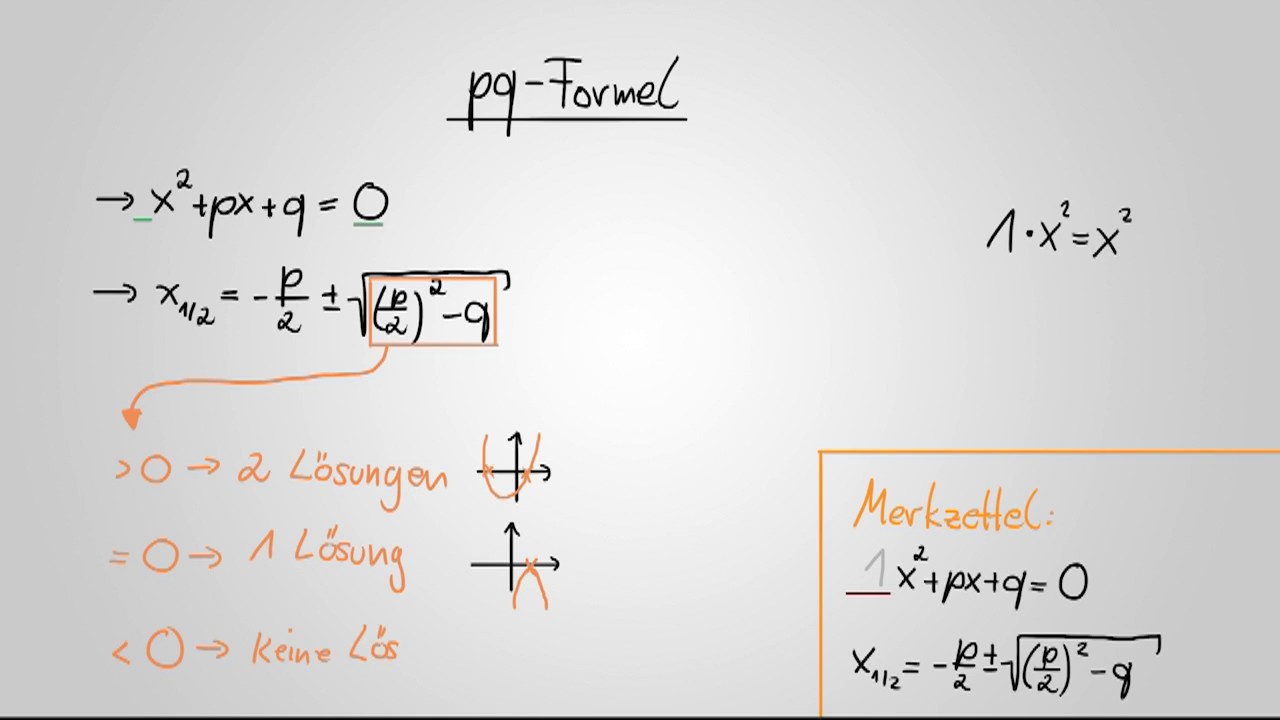 pq-Formel
→ x²+px+q = 0
1·x²=x²
→ x₁/₂ = -p/2 ± √((p/2)²-q)
>0 → 2 Lösungen
=0 → 1 Lösung
<0 → keine Lös
Merkzettel:
1x²+px+q=0
x₁/₂ = -p/2 ± √((p/2)²-q)